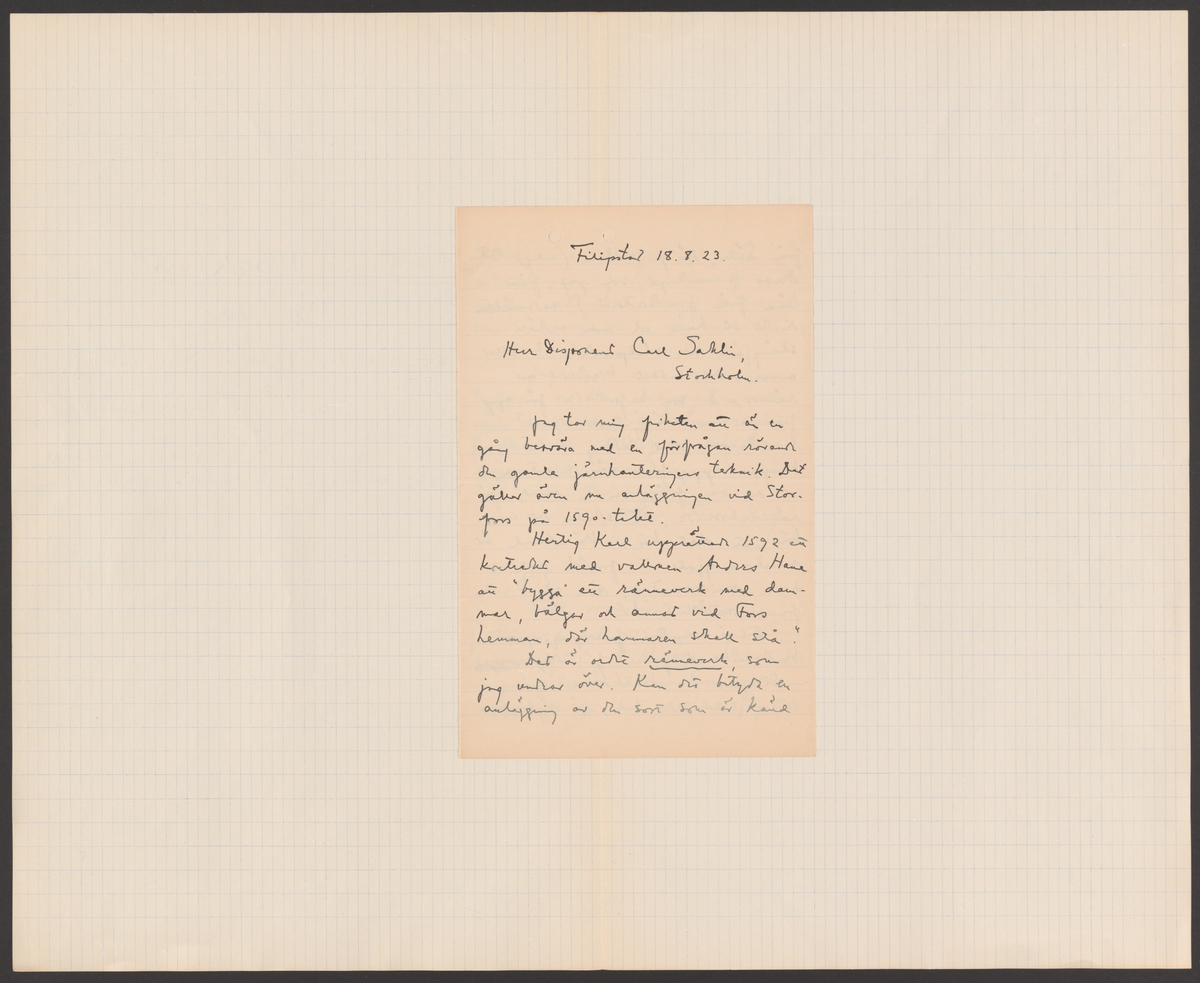 Filipstad 18.8.23.
Herr Disponent Carl Sahlin,
Stockholm.
Jag tar mig friheten att än en
gång besvära med en förfrågan rörande
den gamla järnhanteringens teknik. Det
gäller även nu anläggningen vid Stor-
fors på 1590-talet.
Hertig Karl upprättade 1592 ett
kontrakt med vallonen Anders Hane
att "bygga ett rännewerk med dam-
mar, bälgar och annat vid Fors
hemman, där hammaren skall stå".
Det är ordet rännewerk, som
jag undrar över. Kan det betyda en
anläggning av den sort som är känd